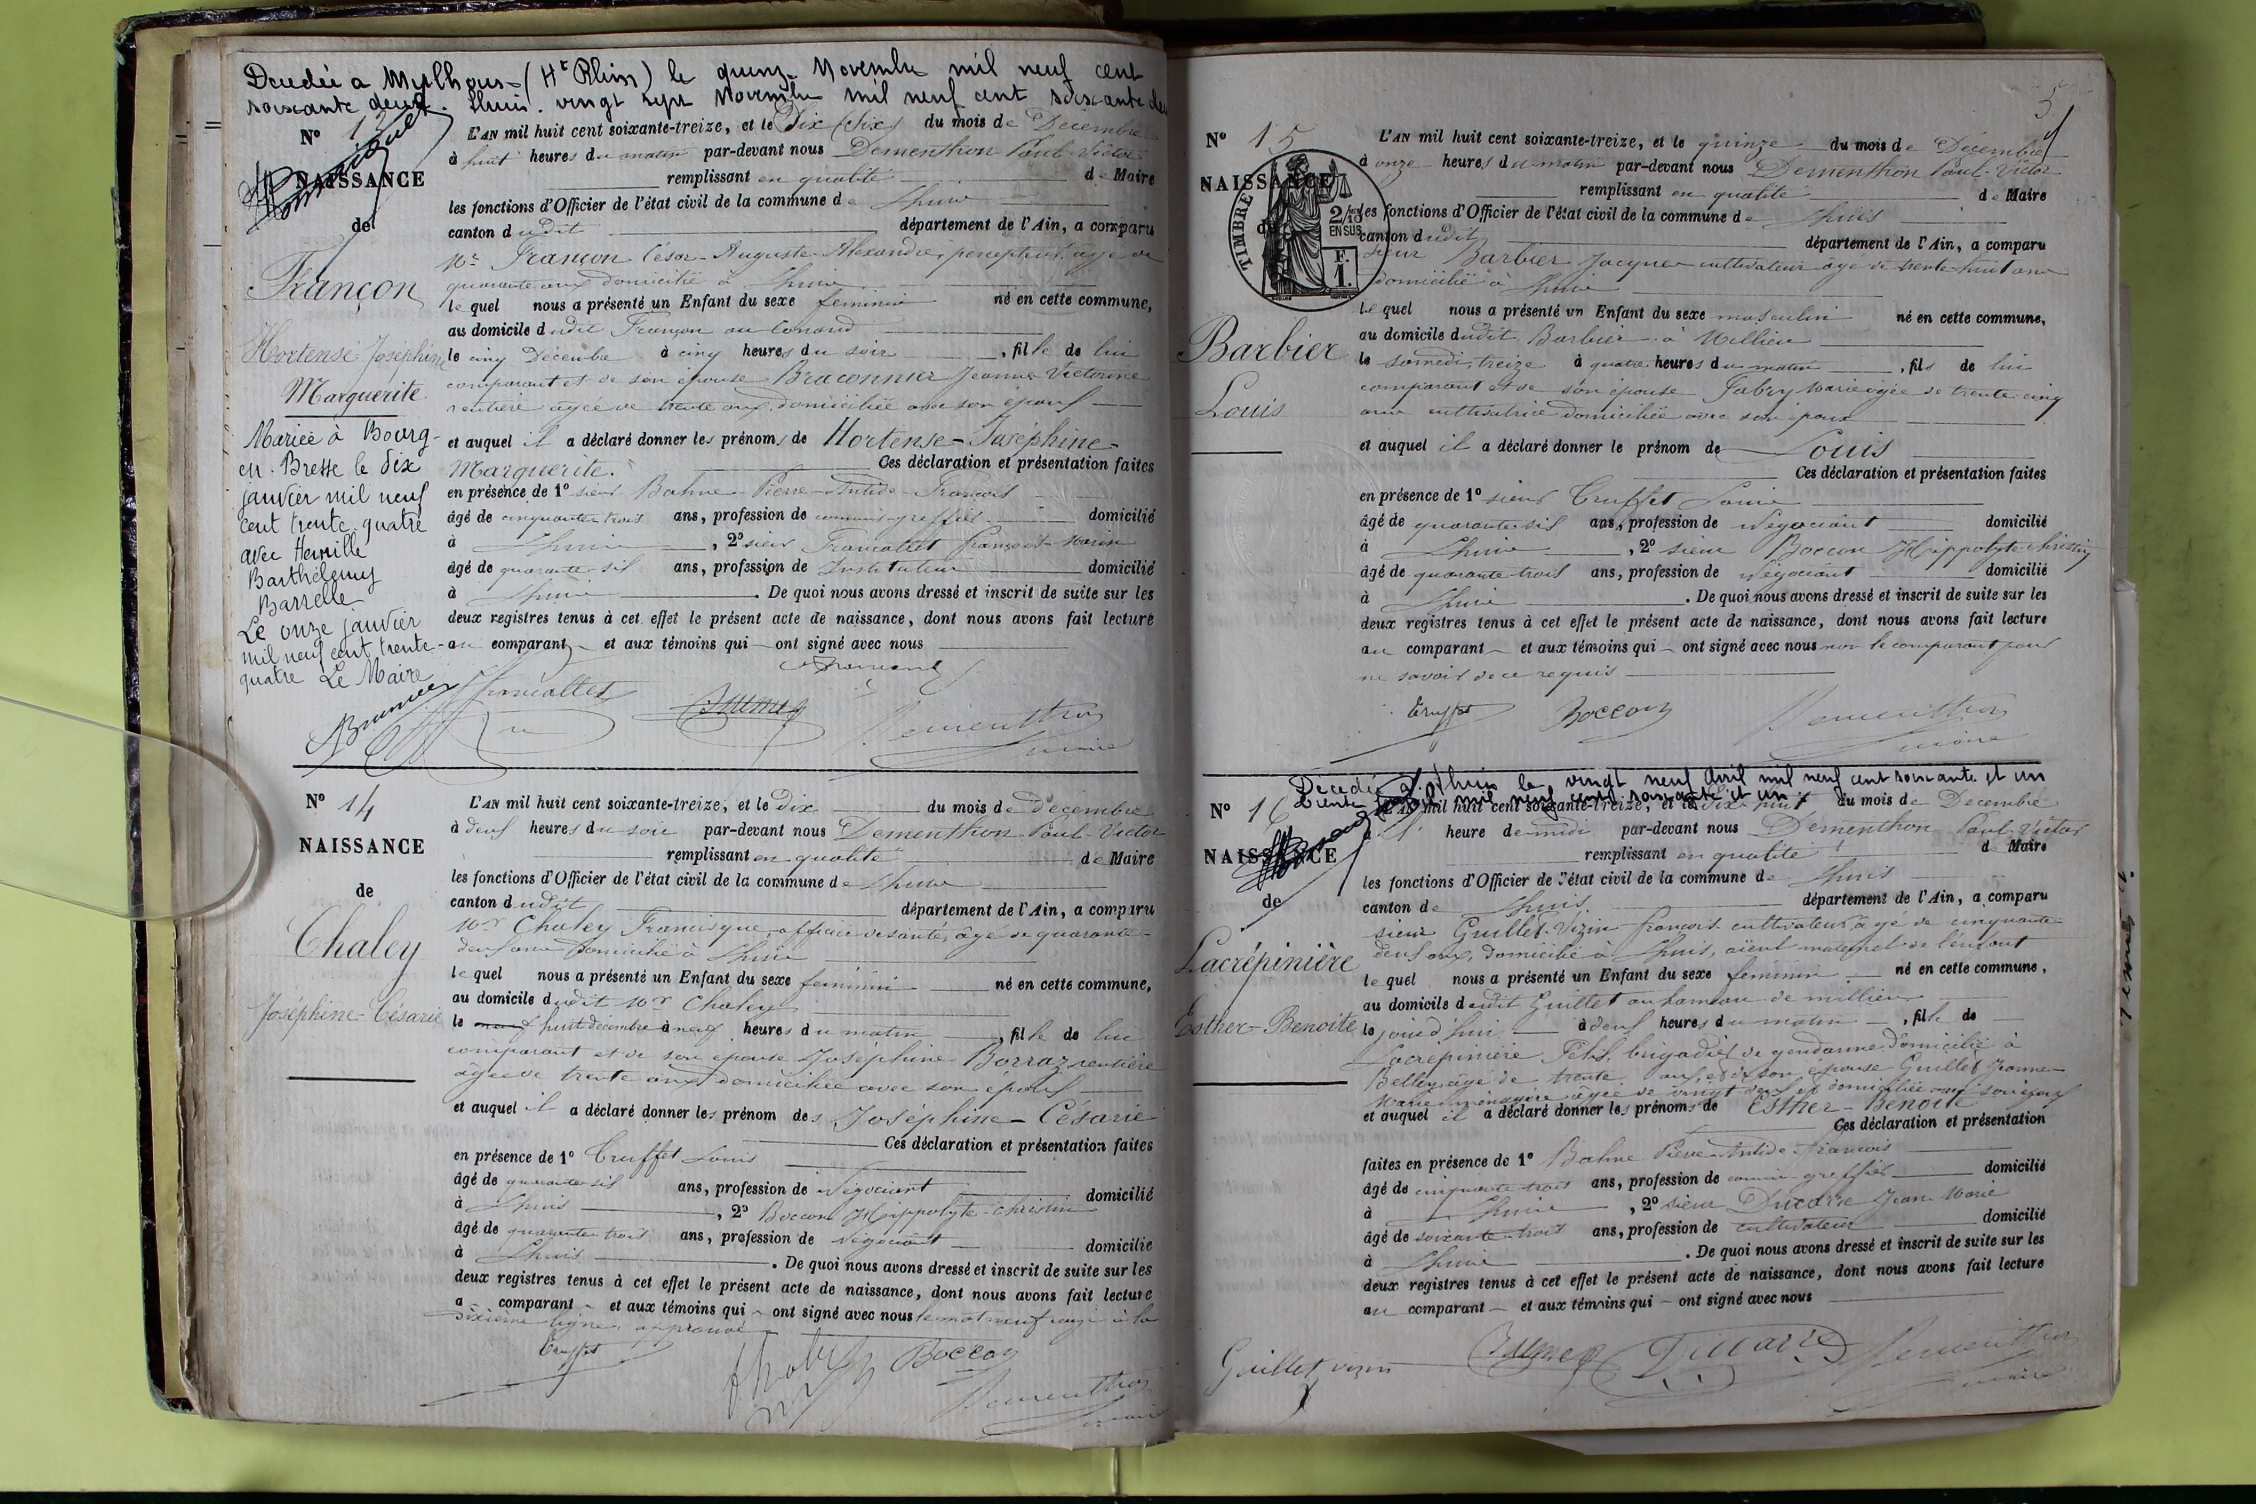 Decedée a Mulhouse (Ht Rhin) le quinze Novembre mil neuf cent
soixante deux. Lhuis. vingt sept Novembre mil neuf cent soixante deux
N° 13
NAISSANCE
de
Françon
Hortense Joséphine
Marguerite
Mariée à Bourg-
en-Bresse le dix
janvier mil neuf
cent trente-quatre
avec
Barthélemy
Le onze janvier
mil neuf cent trente-
quatre Le Maire
L'AN mil huit cent soixante-treize, et le Dix (dix) du mois de Décembre
à huit heures du matin par-devant nous Dementhon Paul-Victor
remplissant en qualité de Maire
les fonctions d'Officier de l'état civil de la commune de Lhuis
canton dudit département de l'Ain, a comparu
Mr Françon César-Auguste-Alexandre, percepteur, âgé de
quarante ans domicilié à Lhuis
le quel nous a présenté un Enfant du sexe feminin né en cette commune,
au domicile dudit Françon au
le cinq Décembre à cinq heures du soir , fille de lui
comparant et de son épouse Braconnier Jeanne Victorine
rentière agée de trente ans, domiciliée avec son époux
et auquel il a déclaré donner les prénoms de Hortense-Joséphine-
Marguerite. Ces déclaration et présentation faites
en présence de 1° sieur Bahne Pierre-Antide-François
âgé de cinquante-trois ans, profession de commis-greffier domicilié
à Lhuis , 2° sieur François-Marie
âgé de quarante six ans, profession de Instituteur domicilié
à Lhuis . De quoi nous avons dressé et inscrit de suite sur les
deux registres tenus à cet effet le présent acte de naissance, dont nous avons fait lecture
au comparant et aux témoins qui ont signé avec nous
Dementhon
maire
N° 14
NAISSANCE
de
Chaley
Joséphine-Césarie
L'AN mil huit cent soixante-treize, et le dix du mois de décembre
à deux heures du soir par-devant nous Dementhon Paul-Victor
remplissant en qualité de Maire
les fonctions d'Officier de l'état civil de la commune de Lhuis
canton dudit département de l'Ain, a comparu
Mr Chaley Francisque, officier de santé, âgé de quarante-
deux ans domicilié à Lhuis
le quel nous a présenté un Enfant du sexe feminin né en cette commune,
au domicile dudit Mr Chaley
le neuf huit décembre à neuf heures du matin , fille de lui
comparant et de son épouse Joséphine Borraz rentière
agée de trente ans domiciliée avec son époux
et auquel il a déclaré donner les prénom des Joséphine-Césarie
Ces déclaration et présentation faites
en présence de 1° Truffet Louis
âgé de quarante six ans, profession de Négociant domicilié
à Lhuis , 2° Boccon Hippolyte-Christin
âgé de quarante-trois ans, profession de Négociant domicilié
à Lhuis . De quoi nous avons dressé et inscrit de suite sur les
deux registres tenus à cet effet le présent acte de naissance, dont nous avons fait lecture
a comparant et aux témoins qui ont signé avec nous le mot neuf rayé à la
dixième ligne approuvé
Truffet Chaley Boccon
Dementhon
maire
5
N° 15
NAISSANCE
de
TIMBRE
2/10 EN SUS
F.
1.
Barbier
Louis
L'AN mil huit cent soixante-treize, et le quinze du mois de Décembre
à onze heures du matin par-devant nous Dementhon Paul-Victor
remplissant en qualité de Maire
les fonctions d'Officier de l'état civil de la commune de Lhuis
canton dudit département de l'Ain, a comparu
sieur Barbier Jacques cultivateur âgé de trente-huit ans
domicilié à Lhuis
le quel nous a présenté un Enfant du sexe masculin né en cette commune,
au domicile dudit Barbier à Millieu
le samedi treize à quatre heures du matin , fils de lui
comparant et de son épouse Fabry Marie âgée de trente-cinq
ans cultivatrice domiciliée avec son époux
et auquel il a déclaré donner le prénom de Louis
Ces déclaration et présentation faites
en présence de 1° sieur Truffet Louis
âgé de quarante-six ans, profession de Négociant domicilié
à Lhuis , 2° sieur Boccon Hippolyte-Christin
âgé de quarante-trois ans, profession de Négociant domicilié
à Lhuis . De quoi nous avons dressé et inscrit de suite sur les
deux registres tenus à cet effet le présent acte de naissance, dont nous avons fait lecture
au comparant et aux témoins qui ont signé avec nous non le comparant pour
ne savoir de ce requis
Truffet Boccon Dementhon
maire
Décédée à Lhuis le vingt neuf Avril mil neuf cent soixante et un
trente Avril mil neuf cent soixante et un
N° 16
NAISSANCE
de
Lacrépinière
Esther-Benoite
L'AN mil huit cent soixante-treize, et le dix-huit du mois de Décembre
à l' heure de midi par-devant nous Dementhon Paul-Victor
remplissant en qualité d Maire
les fonctions d'Officier de l'état civil de la commune de Lhuis
canton de Lhuis. département de l'Ain, a comparu
sieur Guillet-Vizin François cultivateur, âgé de cinquante-
deux ans, domicilié à Lhuis, aïeul maternel de l'enfant
le quel nous a présenté un Enfant du sexe feminin né en cette commune,
au domicile dudit Guillet au hameau de millieu
le jourd'hui à deux heures du matin , fille de
Lacrépinière Félix, brigadier de gendarme domicilié à
Belley, âgé de trente ans, et de son épouse Guillet Jeanne-
Marie ménagère agée de vingt deux ans domiciliée avec son époux
et auquel il a déclaré donner les prénoms de Esther-Benoite
Ces déclaration et présentation
faites en présence de 1° Bahne Pierre-Antide-François
âgé de cinquante-trois ans, profession de commis greffier domicilié
à Lhuis , 2° sieur Ducarre Jean-Marie
âgé de soixante-trois ans, profession de cultivateur domicilié
à Lhuis . De quoi nous avons dressé et inscrit de suite sur les
deux registres tenus à cet effet le présent acte de naissance, dont nous avons fait lecture
au comparant et aux témoins qui ont signé avec nous
Guillet vizin Ducarre Dementhon
maire